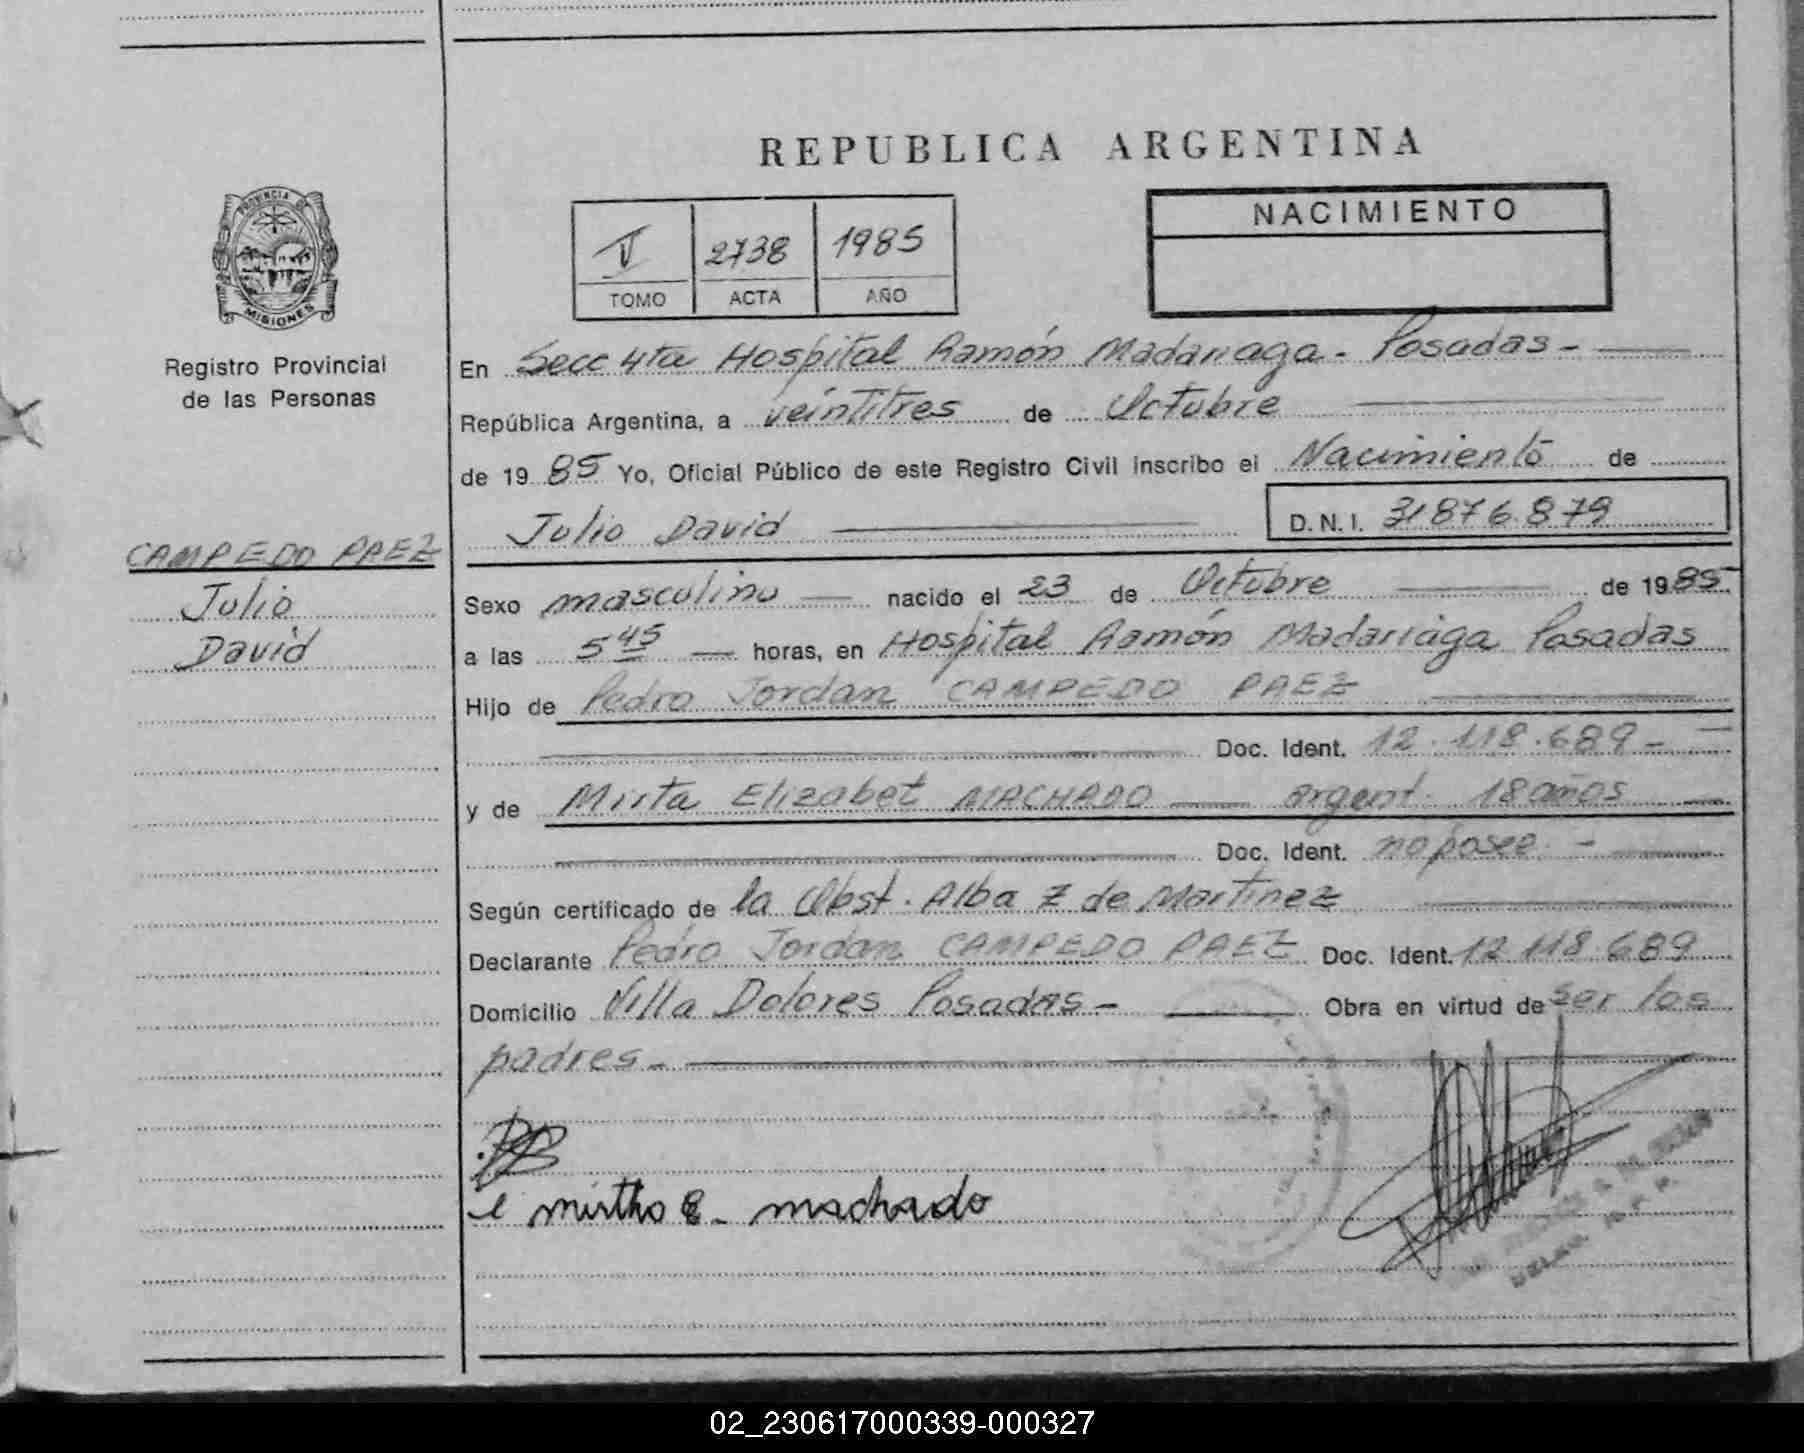 REPUBLICA ARGENTINA
PROVINCIA DE
MISIONES
Registro Provincial
de las Personas
V 2738 1985
TOMO ACTA AÑO
NACIMIENTO
En Secc 4ta Hospital Ramón Madariaga - Posadas -
República Argentina, a veintitres de Octubre
de 1985 Yo, Oficial Público de este Registro Civil inscribo el Nacimiento de
Julio David D.N.I. 31876.879
CAMPEDO PAEZ
Julio
David
Sexo masculino nacido el 23 de Octubre de 1985
a las 5 45 horas, en Hospital Ramón Madariaga Posadas
Hijo de Pedro Jordan CAMPEDO PAEZ
Doc. Ident. 12.118.689 -
y de Mirta Elizabet MACHADO argent. 18 años
Doc. Ident. no posee. -
Según certificado de la Obst. Alba Z de Martinez
Declarante Pedro Jordan CAMPEDO PAEZ Doc. Ident. 12 118.689
Domicilio Villa Dolores Posadas - Obra en virtud de ser los
padres -
mirtho E. machado
02_230617000339-000327